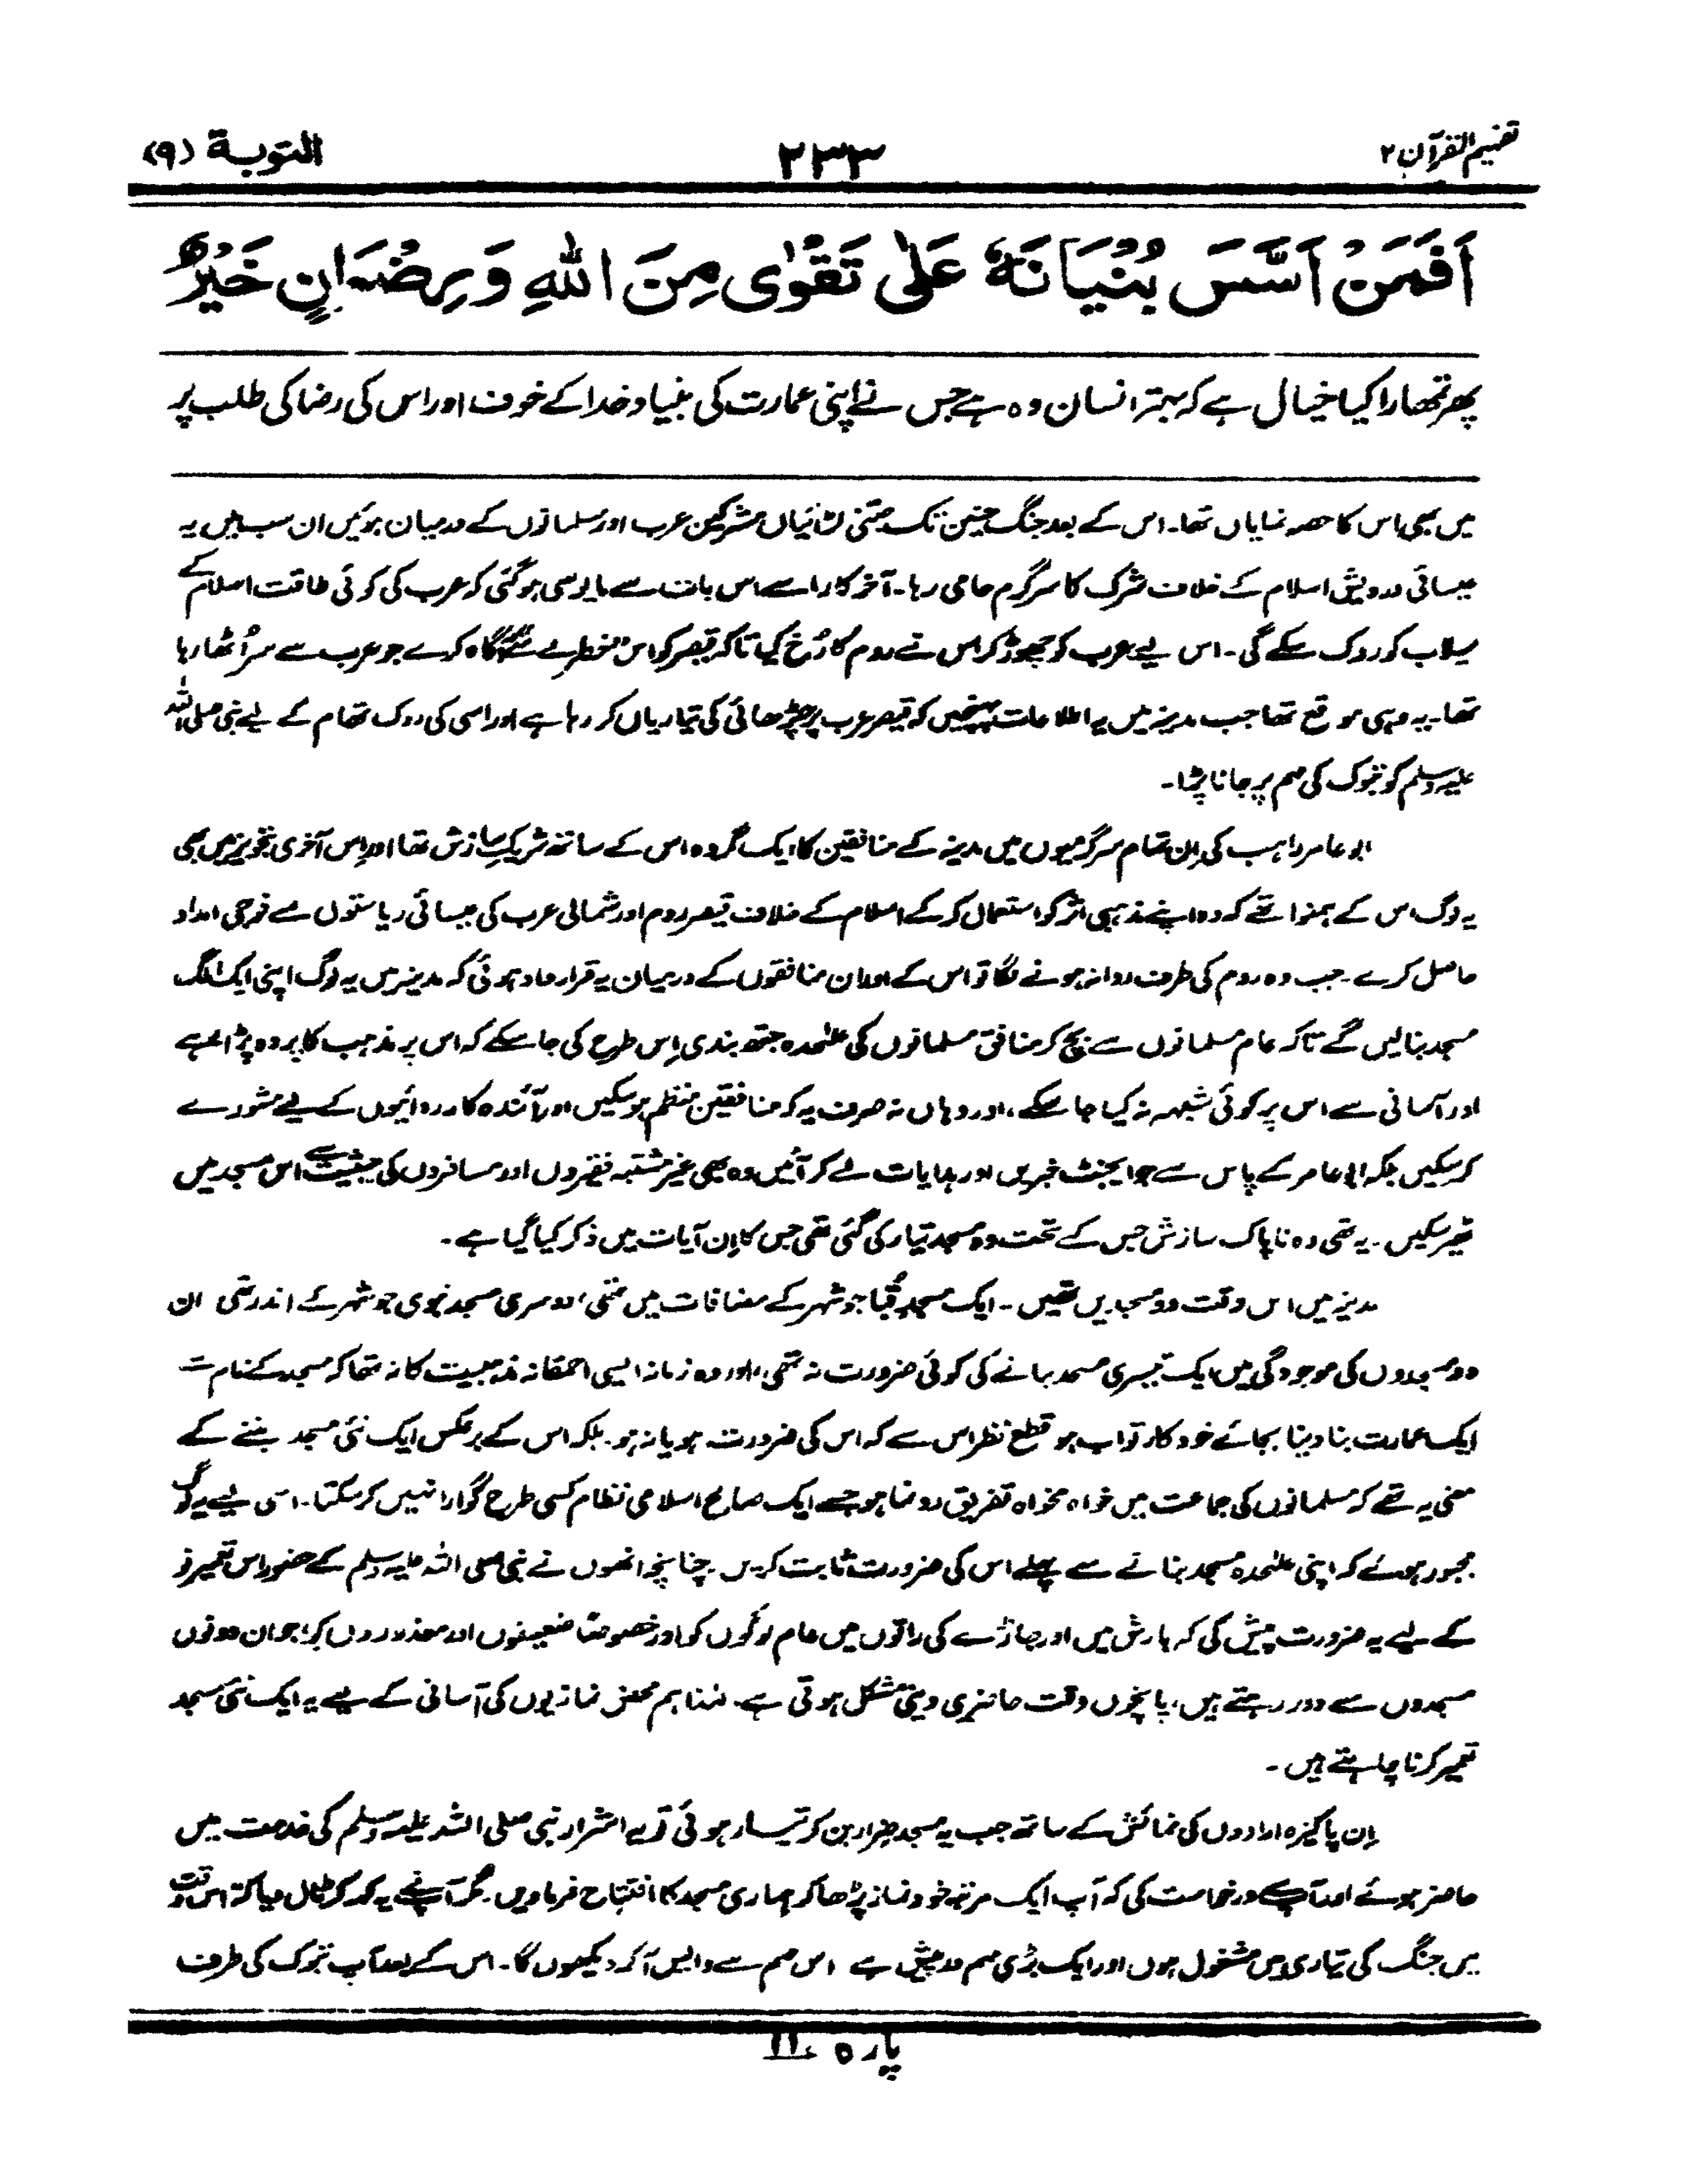 تفہیم القرآن ۲
۲۳۳
التوبة (۹)
اَفَمَنْ اَسَّسَ بُنْيَانَهٗ عَلٰى تَقْوٰى مِنَ اللّٰهِ وَرِضْوَانٍ خَيْرٌ
پھر تمھارا کیا خیال ہے کہ بہتر انسان وہ ہے جس نے اپنی عمارت کی بنیاد خدا کے خوف اور اس کی رضا کی طلب پر
میں بھی اس کا حصہ نمایاں تھا۔ اس کے بعد جنگ حنین تک جتنی لڑائیاں مشرکین عرب اور مسلمانوں کے درمیان ہوئیں ان سب میں یہ
عیسائی درویش اسلام کے خلاف شرک کا سرگرم حامی رہا۔ آخر کار اسے اس بات سے مایوسی ہو گئی کہ عرب کی کوئی طاقت اسلام کے
سیلاب کو روک سکے گی۔ اس لیے عرب کو چھوڑ کر اس نے روم کا رُخ کیا تاکہ قیصر کو اس خطرے سے آگاہ کرے جو عرب سے سر اُٹھا رہا
تھا۔ یہ وہی موقع تھا جب مدینہ میں یہ اطلاعات پہنچیں کہ قیصر عرب پر چڑھائی کی تیاریاں کر رہا ہے اور اسی کی روک تھام کے لیے نبی صلی اللہ
علیہ وسلم کو تبوک کی مہم پر جانا پڑا۔
ابو عامر راہب کی اِن تمام سرگرمیوں میں مدینہ کے منافقین کا ایک گروہ اس کے ساتھ شریکِ سازش تھا اور اِس آخری تجویز میں بھی
یہ لوگ اس کے ہمنوا تھے کہ وہ اپنے مذہبی اثر کو استعمال کر کے اسلام کے خلاف قیصر روم اور شمالی عرب کی عیسائی ریاستوں سے فوجی امداد
حاصل کرے۔ جب وہ روم کی طرف روانہ ہونے لگا تو اس کے اور ان منافقوں کے درمیان یہ قرارداد ہوئی کہ مدینہ میں یہ لوگ اپنی ایک الگ
مسجد بنا لیں گے تاکہ عام مسلمانوں سے بچ کر منافق مسلمانوں کی علٰحدہ جتھ بندی اِس طرح کی جا سکے کہ اس پر مذہب کا پردہ پڑا رہے
اور آسانی سے اس پر کوئی شبہہ نہ کیا جا سکے، اور وہاں نہ صرف یہ کہ منافقین منظم ہو سکیں اور آئندہ کارروائیوں کے لیے مشورے
کر سکیں بلکہ ابو عامر کے پاس سے جو ایجنٹ خبریں اور ہدایات لے کر آئیں وہ بھی غیر مشتبہ فقیروں اور مسافروں کی حیثیت سے اس مسجد میں
ٹھیر سکیں۔ یہ تھی وہ ناپاک سازش جس کے تحت وہ مسجد تیار کی گئی تھی جس کا اِن آیات میں ذکر کیا گیا ہے۔
مدینہ میں اس وقت دو مسجدیں تھیں۔ ایک مسجد قُبا جو شہر کے مضافات میں تھی، دوسری مسجد نبوی جو شہر کے اندر تھی ان
دو مسجدوں کی موجودگی میں ایک تیسری مسجد بنانے کی کوئی ضرورت نہ تھی، اور وہ زمانہ ایسی احمقانہ مذہبیت کا نہ تھا کہ مسجد کے نام سے
ایک عمارت بنا دینا بجائے خود کار ثواب ہو قطع نظر اس سے کہ اس کی ضرورت ہو یا نہ ہو۔ بلکہ اس کے برعکس ایک نئی مسجد بننے کے
معنی یہ تھے کہ مسلمانوں کی جماعت میں خواہ مخواہ تفریق رونما ہو جسے ایک صالح اسلامی نظام کسی طرح گوارا نہیں کر سکتا۔ اسی لیے یہ لوگ
مجبور ہوئے کہ اپنی علٰحدہ مسجد بنانے سے پہلے اس کی ضرورت ثابت کریں۔ چنانچہ انھوں نے نبی صلی اللہ علیہ وسلم کے حضور اس تعمیر نو
کے لیے یہ ضرورت پیش کی کہ بارش میں اور جاڑے کی راتوں میں عام لوگوں کو اور خصوصًا ضعیفوں اور معذوروں کو، جو ان دونوں
مسجدوں سے دور رہتے ہیں، پانچوں وقت حاضری دینی مشکل ہوتی ہے۔ لہٰذا ہم محض نمازیوں کی آسانی کے لیے یہ ایک نئی مسجد
تعمیر کرنا چاہتے ہیں۔
اِن پاکیزہ ارادوں کی نمائش کے ساتھ جب یہ مسجد ضرار بن کر تیار ہوئی تو یہ اشرار نبی صلی اللہ علیہ وسلم کی خدمت میں
حاضر ہوئے اور آپ سے درخواست کی کہ آپ ایک مرتبہ خود نماز پڑھا کر ہماری مسجد کا افتتاح فرما دیں۔ مگر آپ نے یہ کہہ کر ٹال دیا کہ اس وقت
میں جنگ کی تیاری میں مشغول ہوں اور ایک بڑی مہم درپیش ہے، اس مہم سے واپس آ کر دیکھوں گا۔ اس کے بعد آپ تبوک کی طرف
پارہ ۱۱